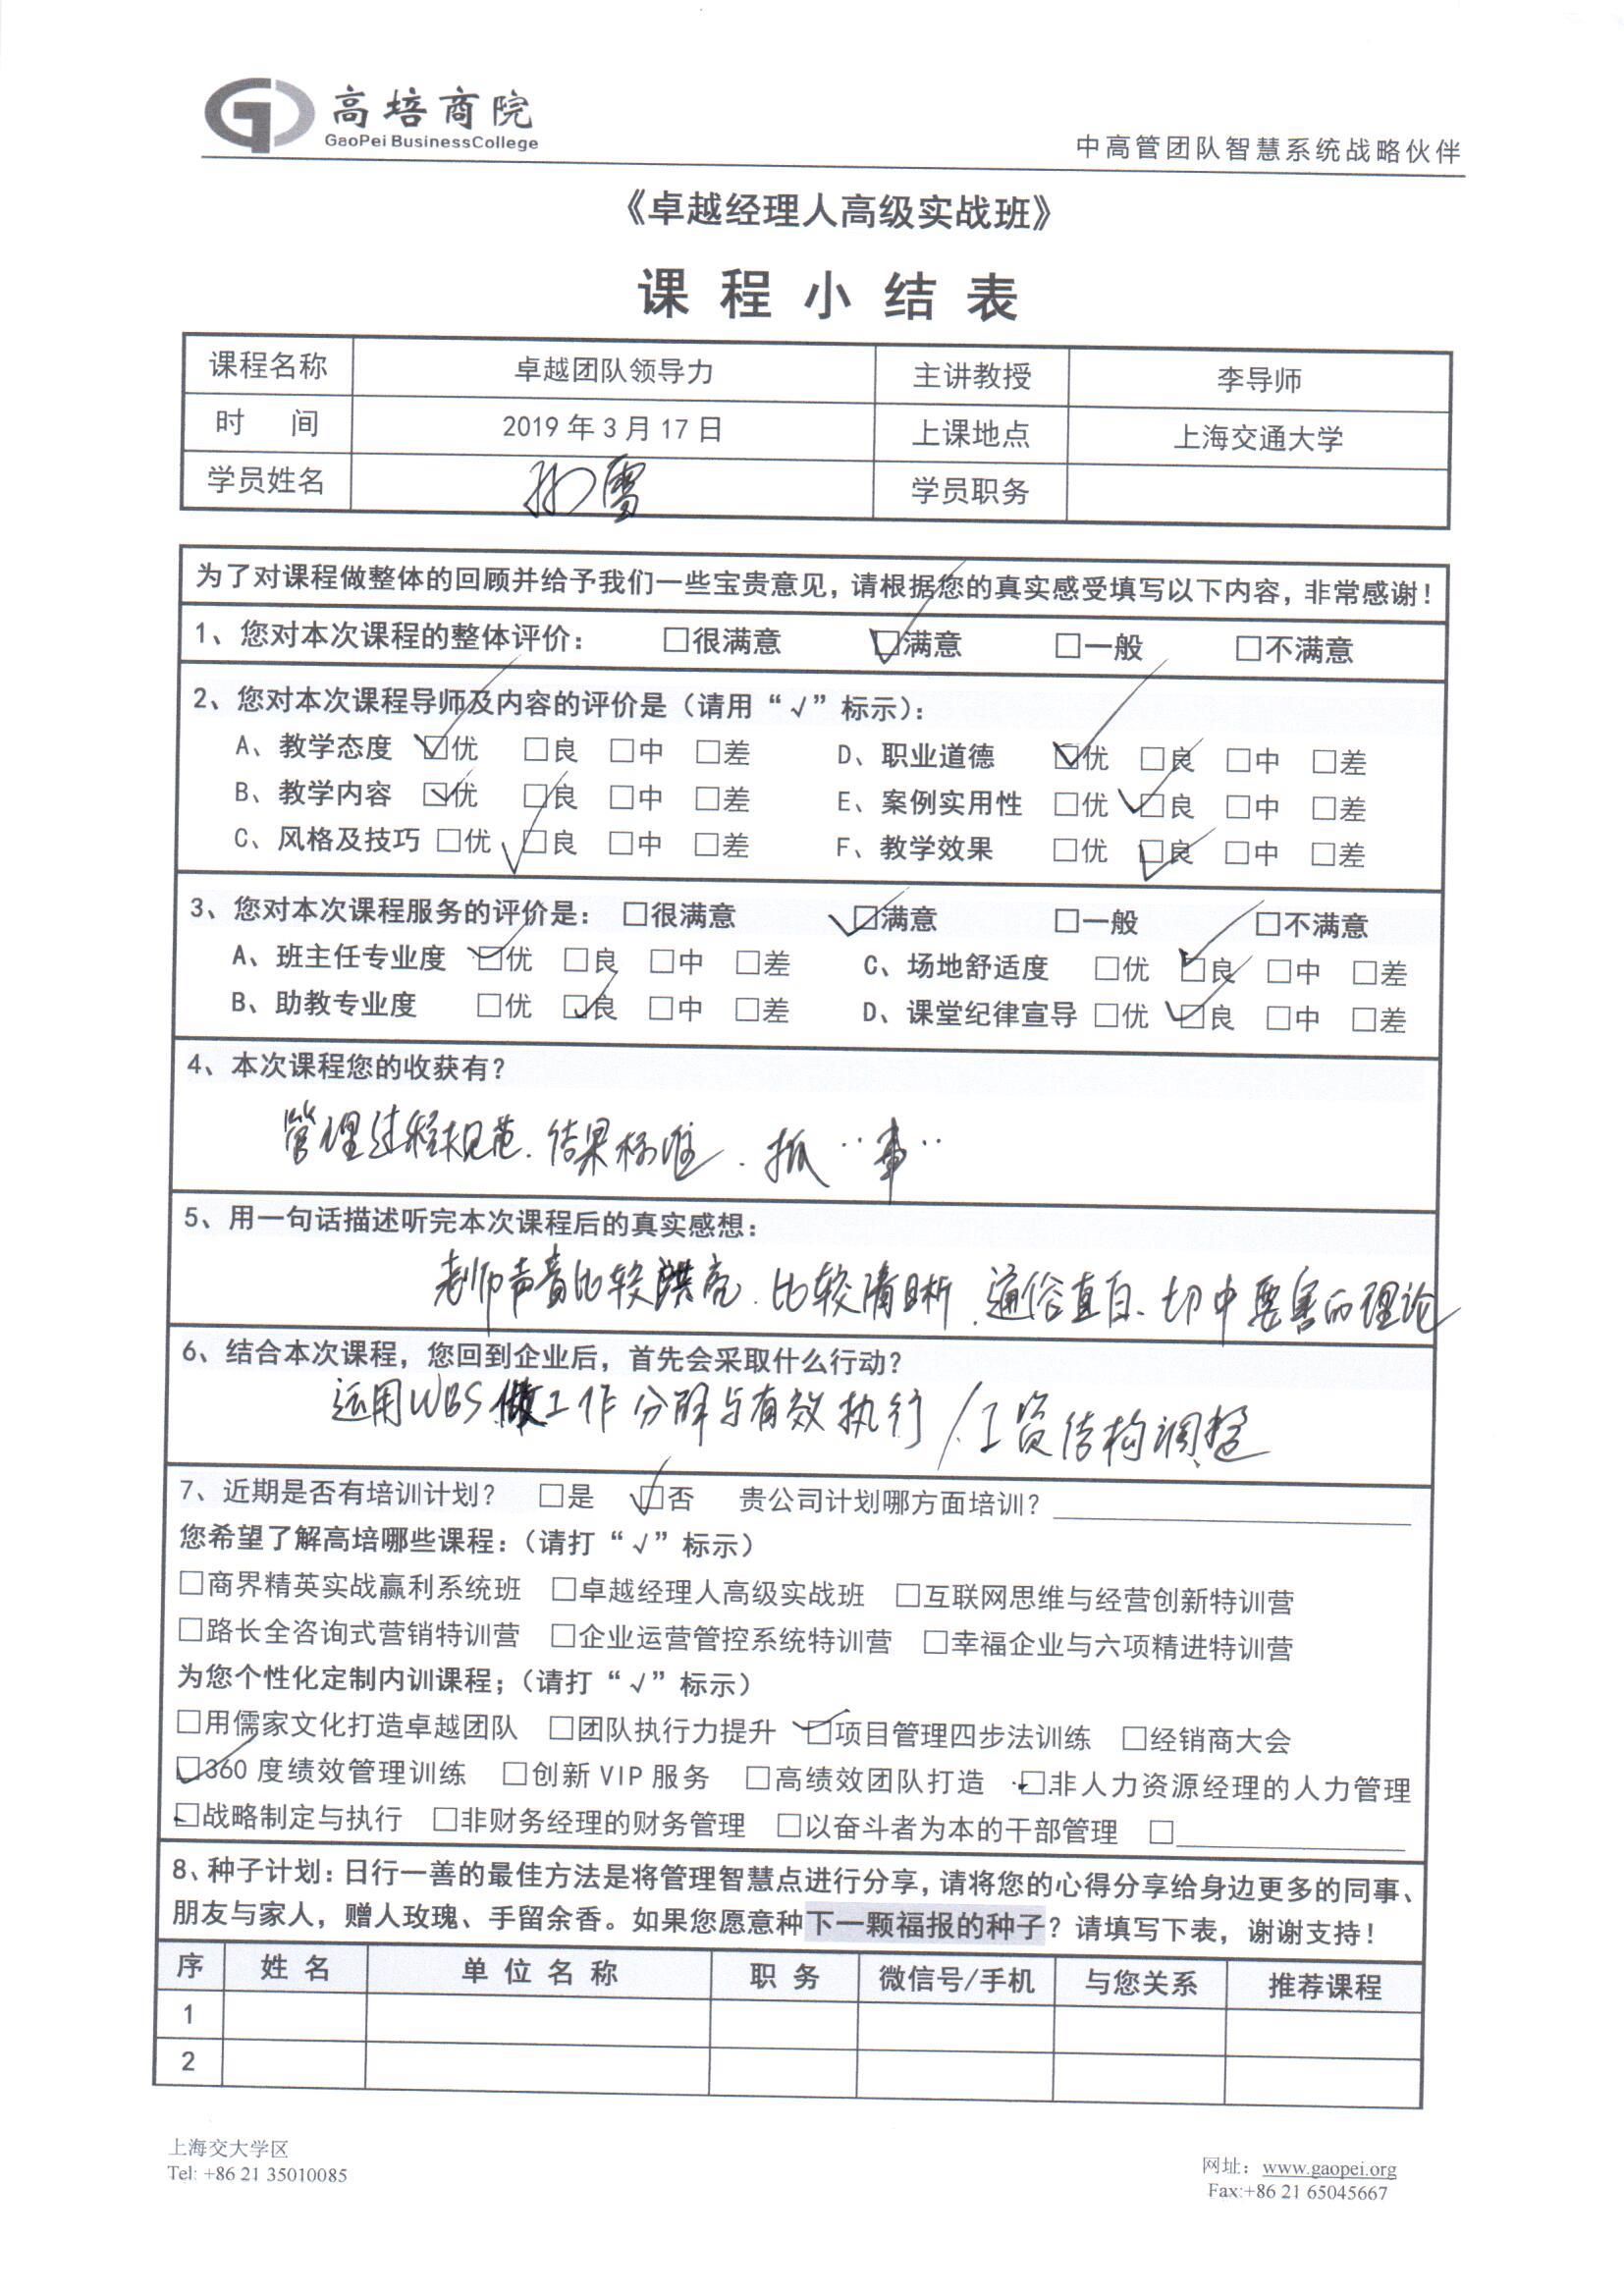 高培商院
GaoPei BusinessCollege
中高管团队智慧系统战略伙伴
《卓越经理人高级实战班》
课程小结表
课程名称 卓越团队领导力 主讲教授 李导师
时 间 2019年3月17日 上课地点 上海交通大学
学员姓名 孙雪 学员职务
为了对课程做整体的回顾并给予我们一些宝贵意见，请根据您的真实感受填写以下内容，非常感谢！
1、您对本次课程的整体评价： □很满意 ☑满意 □一般 □不满意
2、您对本次课程导师及内容的评价是（请用“√”标示）：
A、教学态度 ☑优 □良 □中 □差 D、职业道德 ☑优 □良 □中 □差
B、教学内容 ☑优 □良 □中 □差 E、案例实用性 □优 ☑良 □中 □差
C、风格及技巧 □优 ☑良 □中 □差 F、教学效果 □优 ☑良 □中 □差
3、您对本次课程服务的评价是： □很满意 ☑满意 □一般 □不满意
A、班主任专业度 ☑优 □良 □中 □差 C、场地舒适度 □优 ☑良 □中 □差
B、助教专业度 □优 ☑良 □中 □差 D、课堂纪律宣导 □优 ☑良 □中 □差
4、本次课程您的收获有？
管理过程规范、结果标准、抓“事”
5、用一句话描述听完本次课程后的真实感想：
老师声音比较洪亮、比较清晰、通俗直白、切中要害的理论
6、结合本次课程，您回到企业后，首先会采取什么行动？
运用WBS做工作分解与有效执行/工资结构调整
7、近期是否有培训计划？ □是 ☑否 贵公司计划哪方面培训？
您希望了解高培哪些课程：（请打“√”标示）
□商界精英实战赢利系统班 □卓越经理人高级实战班 □互联网思维与经营创新特训营
□路长全咨询式营销特训营 □企业运营管控系统特训营 □幸福企业与六项精进特训营
为您个性化定制内训课程；（请打“√”标示）
□用儒家文化打造卓越团队 □团队执行力提升 ☑项目管理四步法训练 □经销商大会
☑360度绩效管理训练 □创新VIP服务 □高绩效团队打造 □非人力资源经理的人力管理
□战略制定与执行 □非财务经理的财务管理 □以奋斗者为本的干部管理 □
8、种子计划：日行一善的最佳方法是将管理智慧点进行分享，请将您的心得分享给身边更多的同事、
朋友与家人，赠人玫瑰、手留余香。如果您愿意种下一颗福报的种子？请填写下表，谢谢支持！
序 姓名 单位名称 职务 微信号/手机 与您关系 推荐课程
1
2
上海交大学区
Tel: +86 21 35010085
网址：www.gaopei.org
Fax:+86 21 65045667